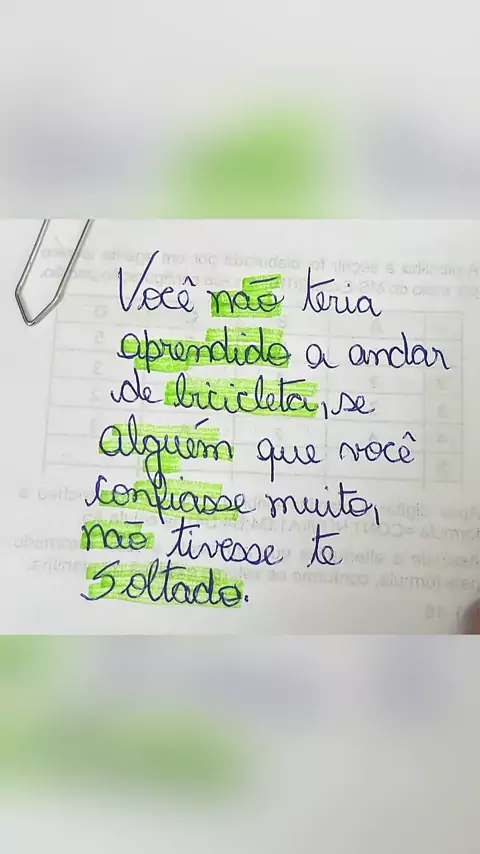 Você não teria
aprendido a andar
de bicicleta, se
alguém que você
confiasse muito,
não tivesse te
soltado.